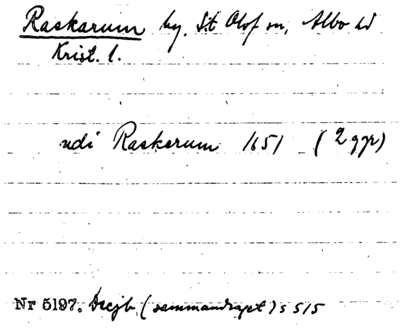 Raskarum by. St Olof sn, Albo hd
Krist. l.
udi Raskerum 1651 (2 ggr)
Nr 5197. Decjb. (sammandraget) s 515